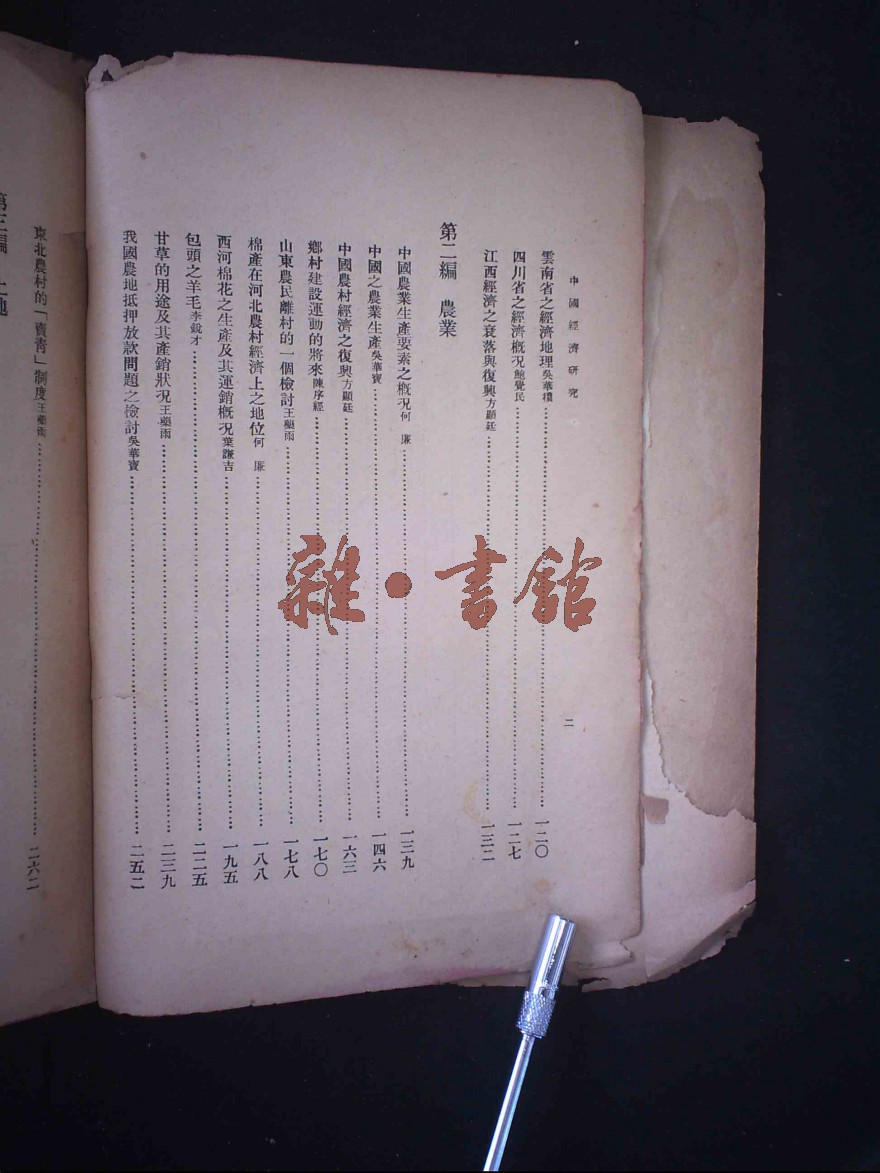 中國經濟研究
二
雲南省之經濟地理 吳華積……一二〇
四川省之經濟概況 鮑覺民……一二七
江西經濟之衰落與復興 方顯廷……一三二
第二編 農業
中國農業生產要素之概況 何 廉……一三九
中國之農業生產 吳華寶……一四六
中國農村經濟之復興 方顯廷……一六三
鄉村建設運動的將來 陳序經……一七〇
山東農民離村的一個檢討 王藥雨……一七八
棉產在河北農村經濟上之地位 何 廉……一八八
西河棉花之生產及其運銷概況 葉謙吉……一九五
包頭之羊毛 李銳才……二二五
甘草的用途及其產銷狀況 王藥雨……二三九
我國農地抵押放款問題之檢討 吳華寶……二五二
東北農村的「賣青」制度 王藥雨……二六二
第三編 土地
雜·書館